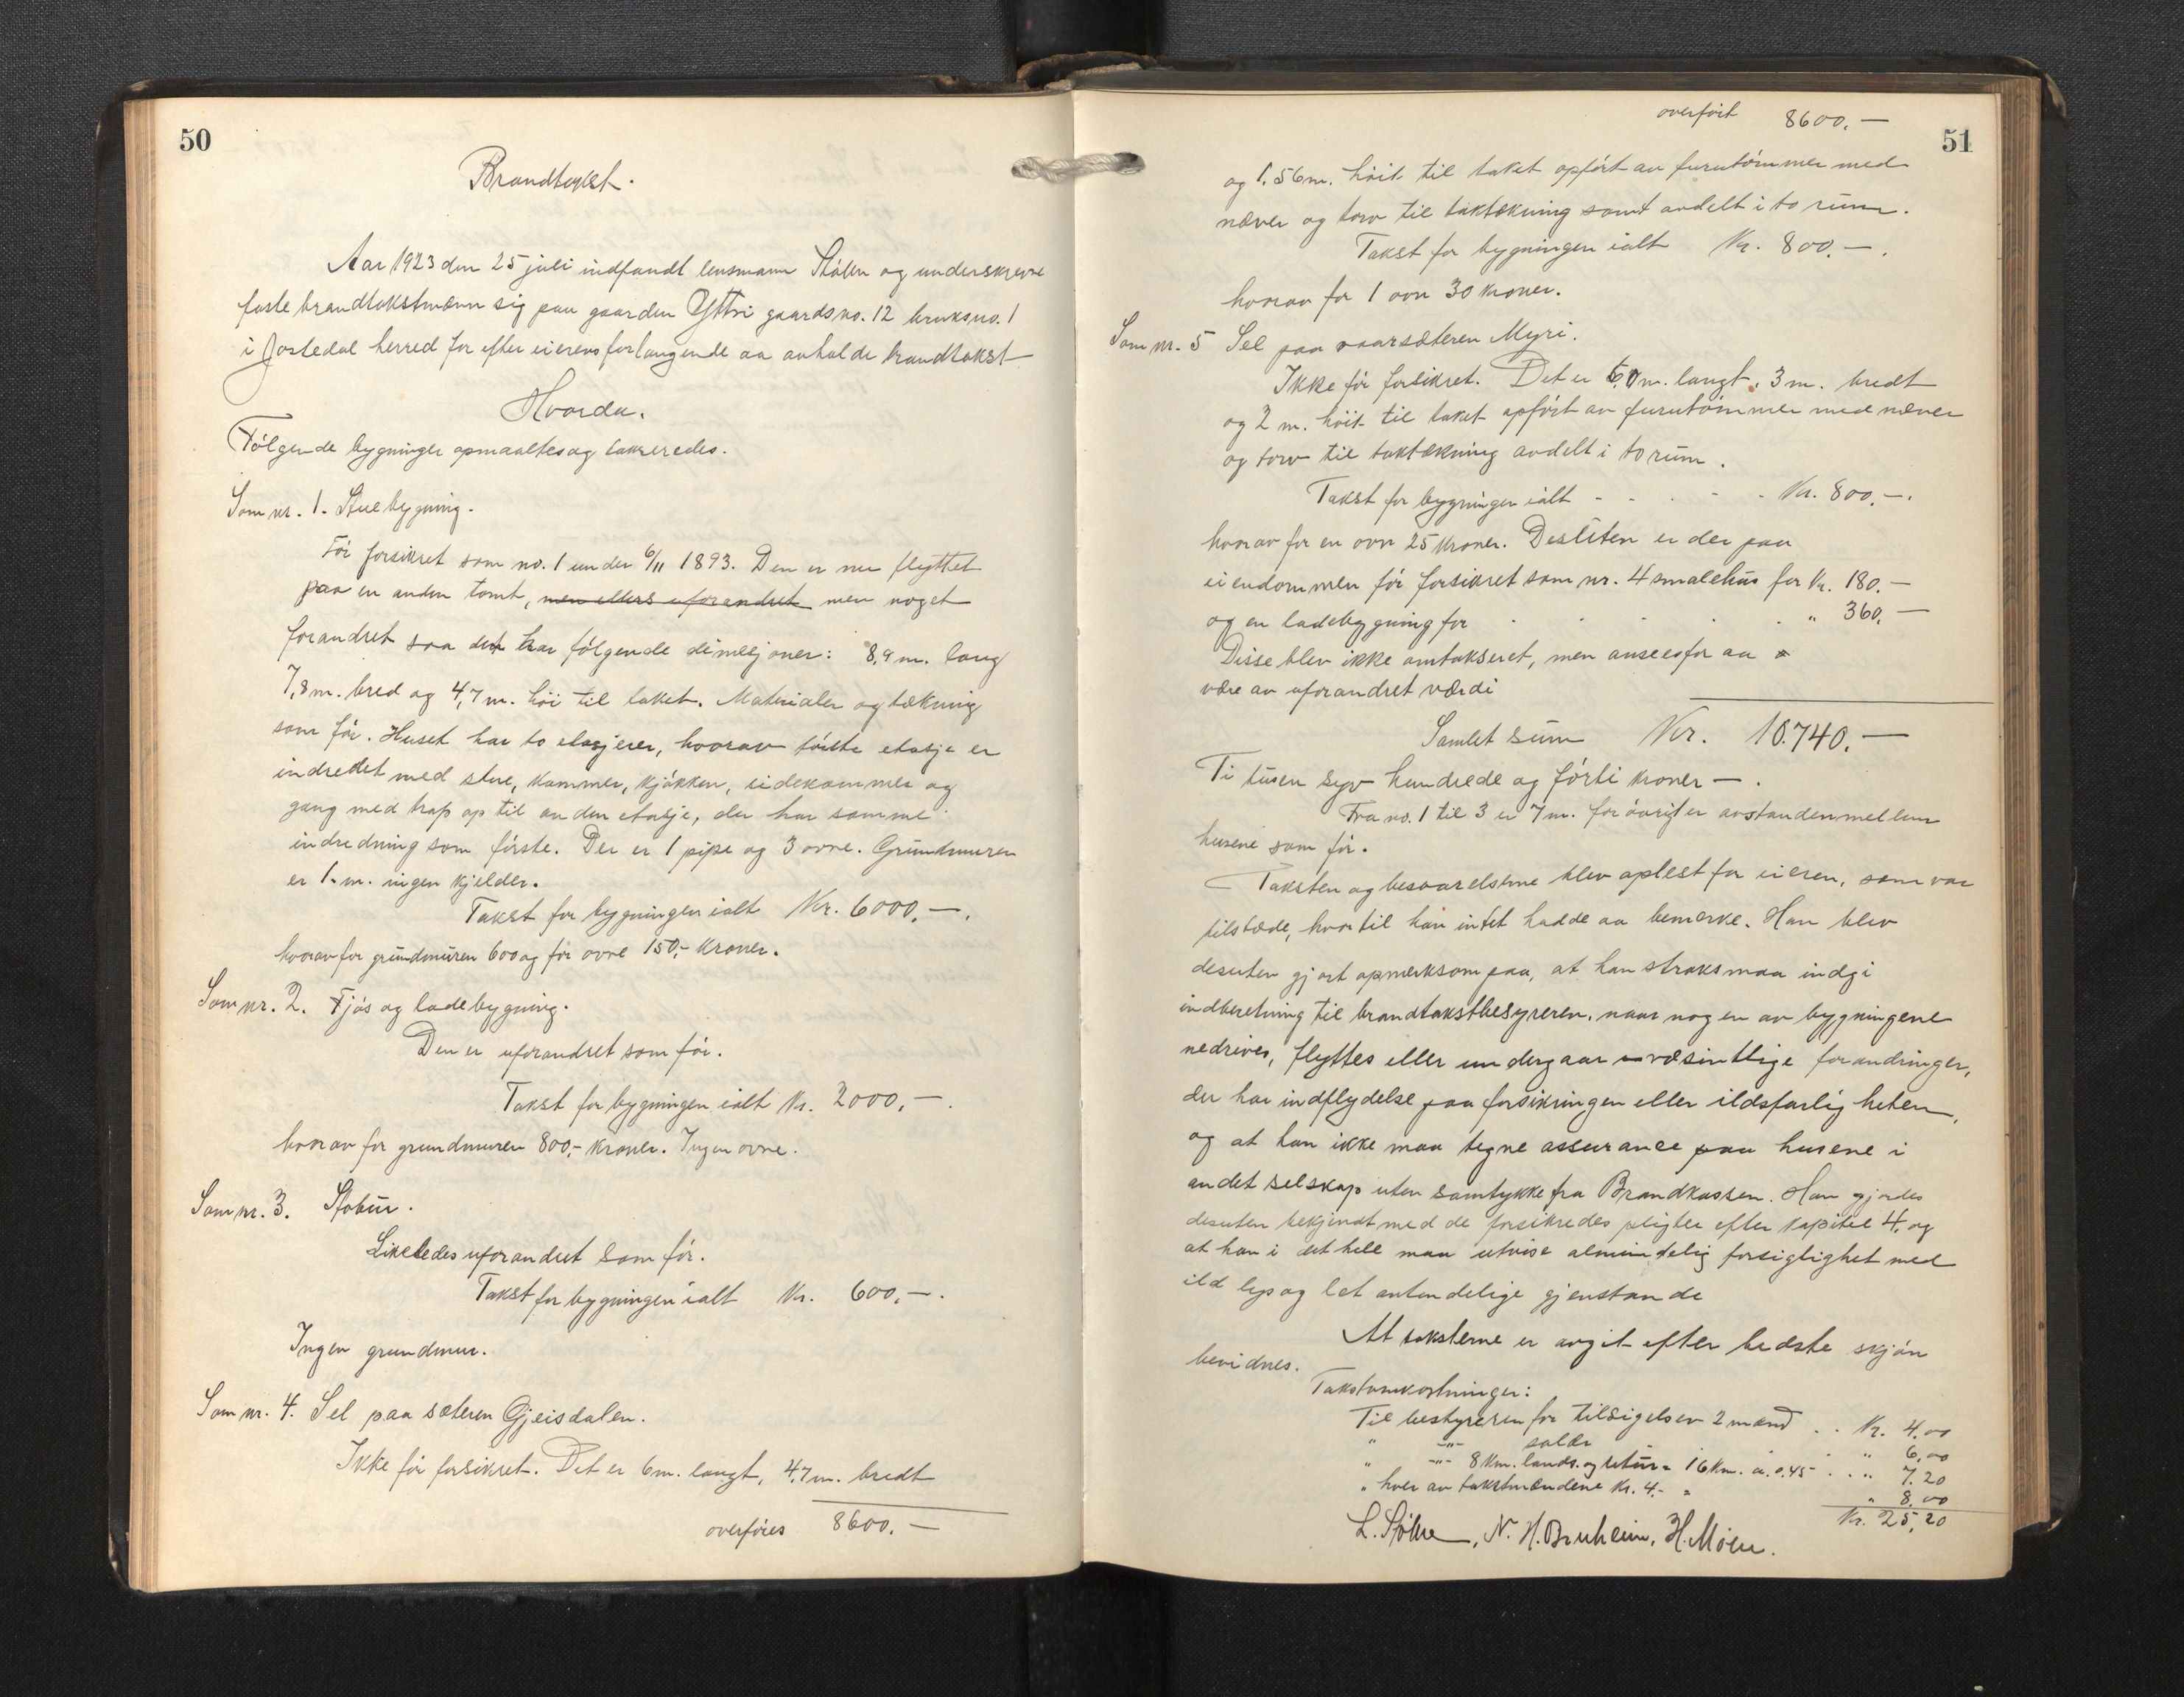 50
Brandtakst.
Aar 1923 den 25 juli indfandt lensmann Stölen og underskrevne
faste brandtakstmænn sig paa gaarden Yttri gaardsno. 12 bruksno. 1
i Jostedal herred for efter eierens forlangende aa avholde brandtakst
Hvorda.
Følgende bygninger opmaaltes og takseredes.
Som nr. 1. Stuebygning.
Før forsikret som no. 1 under 6/11 1893. Den er nu flyttet
paa en anden tomt, men ellers uforandret men noget
forandret saa den har følgende dimensjoner: 8,9 m. lang
7,8 m. bred og 4,7 m. höi til taket. Materialer og tækning
som før. Huset har to etasjerer, hvorav første etasje er
indredet med stue, kammer, kjøkken, sidekammer og
gang med trap op til anden etasje, der har samme
indredning som første. Der er 1 pipe og 3 ovne. Grundmuren
er 1. m. ingen kjelder.
Takst for bygningen ialt Kr. 6000,—.
hvorav for grundmuren 600 og for ovne 150,- kroner.
Som nr. 2. Fjøs og ladebygning.
Den er uforandret som før.
Takst for bygningen ialt Kr. 2000,—.
hvorav for grundmuren 800,- kroner. Ingen ovne.
Som nr. 3. Stobur.
Likeledes uforandret som før.
Takst for bygningen ialt Kr. 600,—.
Ingen grundmur.
Som nr. 4. Sel paa sæteren Gjeisdalen.
Ikke før forsikret. Det er 6 m. langt, 4,7 m. bredt
overføres 8600.—
overført 8600.—
51
og 1,56 m. höit til taket opført av furutømmer med
næver og torv til taktækning samt avdelt i to rum.
Takst for bygningen ialt Kr. 800.—.
hvorav for 1 ovn 30 kroner.
Som nr. 5 Sel paa vaarsæteren Myri.
Ikke før forsikret. Det er 6,0 m. langt, 3 m. bredt
og 2 m. höit til taket opført av furutømmer med næver
og torv til taktækning avdelt i to rum.
Takst for bygningen ialt - - . - . Kr. 800.—.
hvorav for en ovn 25 kroner. Desuten er der paa
eiendommen før forsikret som nr. 4 smalehus for Kr. 180.—
og en ladebygning for . . . . . " 360,—
Disse blev ikke omtakseret, men ansees for aa
være av uforandret værdi
Samlet sum Kr. 10.740.—
Ti tusen syv hundrede og førti kroner—.
Fra no. 1 til 3 er 7 m. for øvrigt er avstanden mellem
husene som før.
Taksten og besvarelserne blev oplest for eieren, som var
tilstæde, hvortil han intet hadde aa bemerke. Han blev
desuten gjort opmerksom paa, at han straks maa indgi
indberetning til brandtakstbestyreren, naar nogen av bygningene
nedrives, flyttes eller undergaar væsintlige forandringer,
der har indflydelse paa forsikringen eller ildsfarligheten,
og at han ikke maa tegne assurance paa husene i
andet selskap uten samtykke fra Brandkassen. Han gjordes
desuten bekjendt med de forsikredes pligter efter kapitel 4, og
at han i det hele maa utvise almindelig forsiglighet med
ild lys og let antendelige gjenstande
At taksterne er avgit efter bedste skjön
bevidnes.
Takstomkostninger:
Til bestyreren for tilsigelsen 2 mænd . . Kr. 4,00
" -"- salær " 6,00
" -"- 8 Km. lands. og retur = 16 Km. a. 0.45 . . . " 7.20
" hver av takstmændene Kr. 4.- = " 8.00
Kr. 25,20
L. Stölen, N. H. Bruheim, H. Moen.